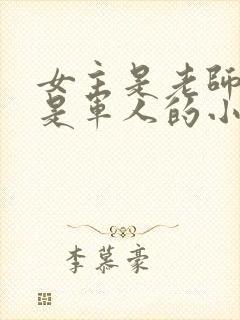 女主是老師
是軍人的小
李慕豪